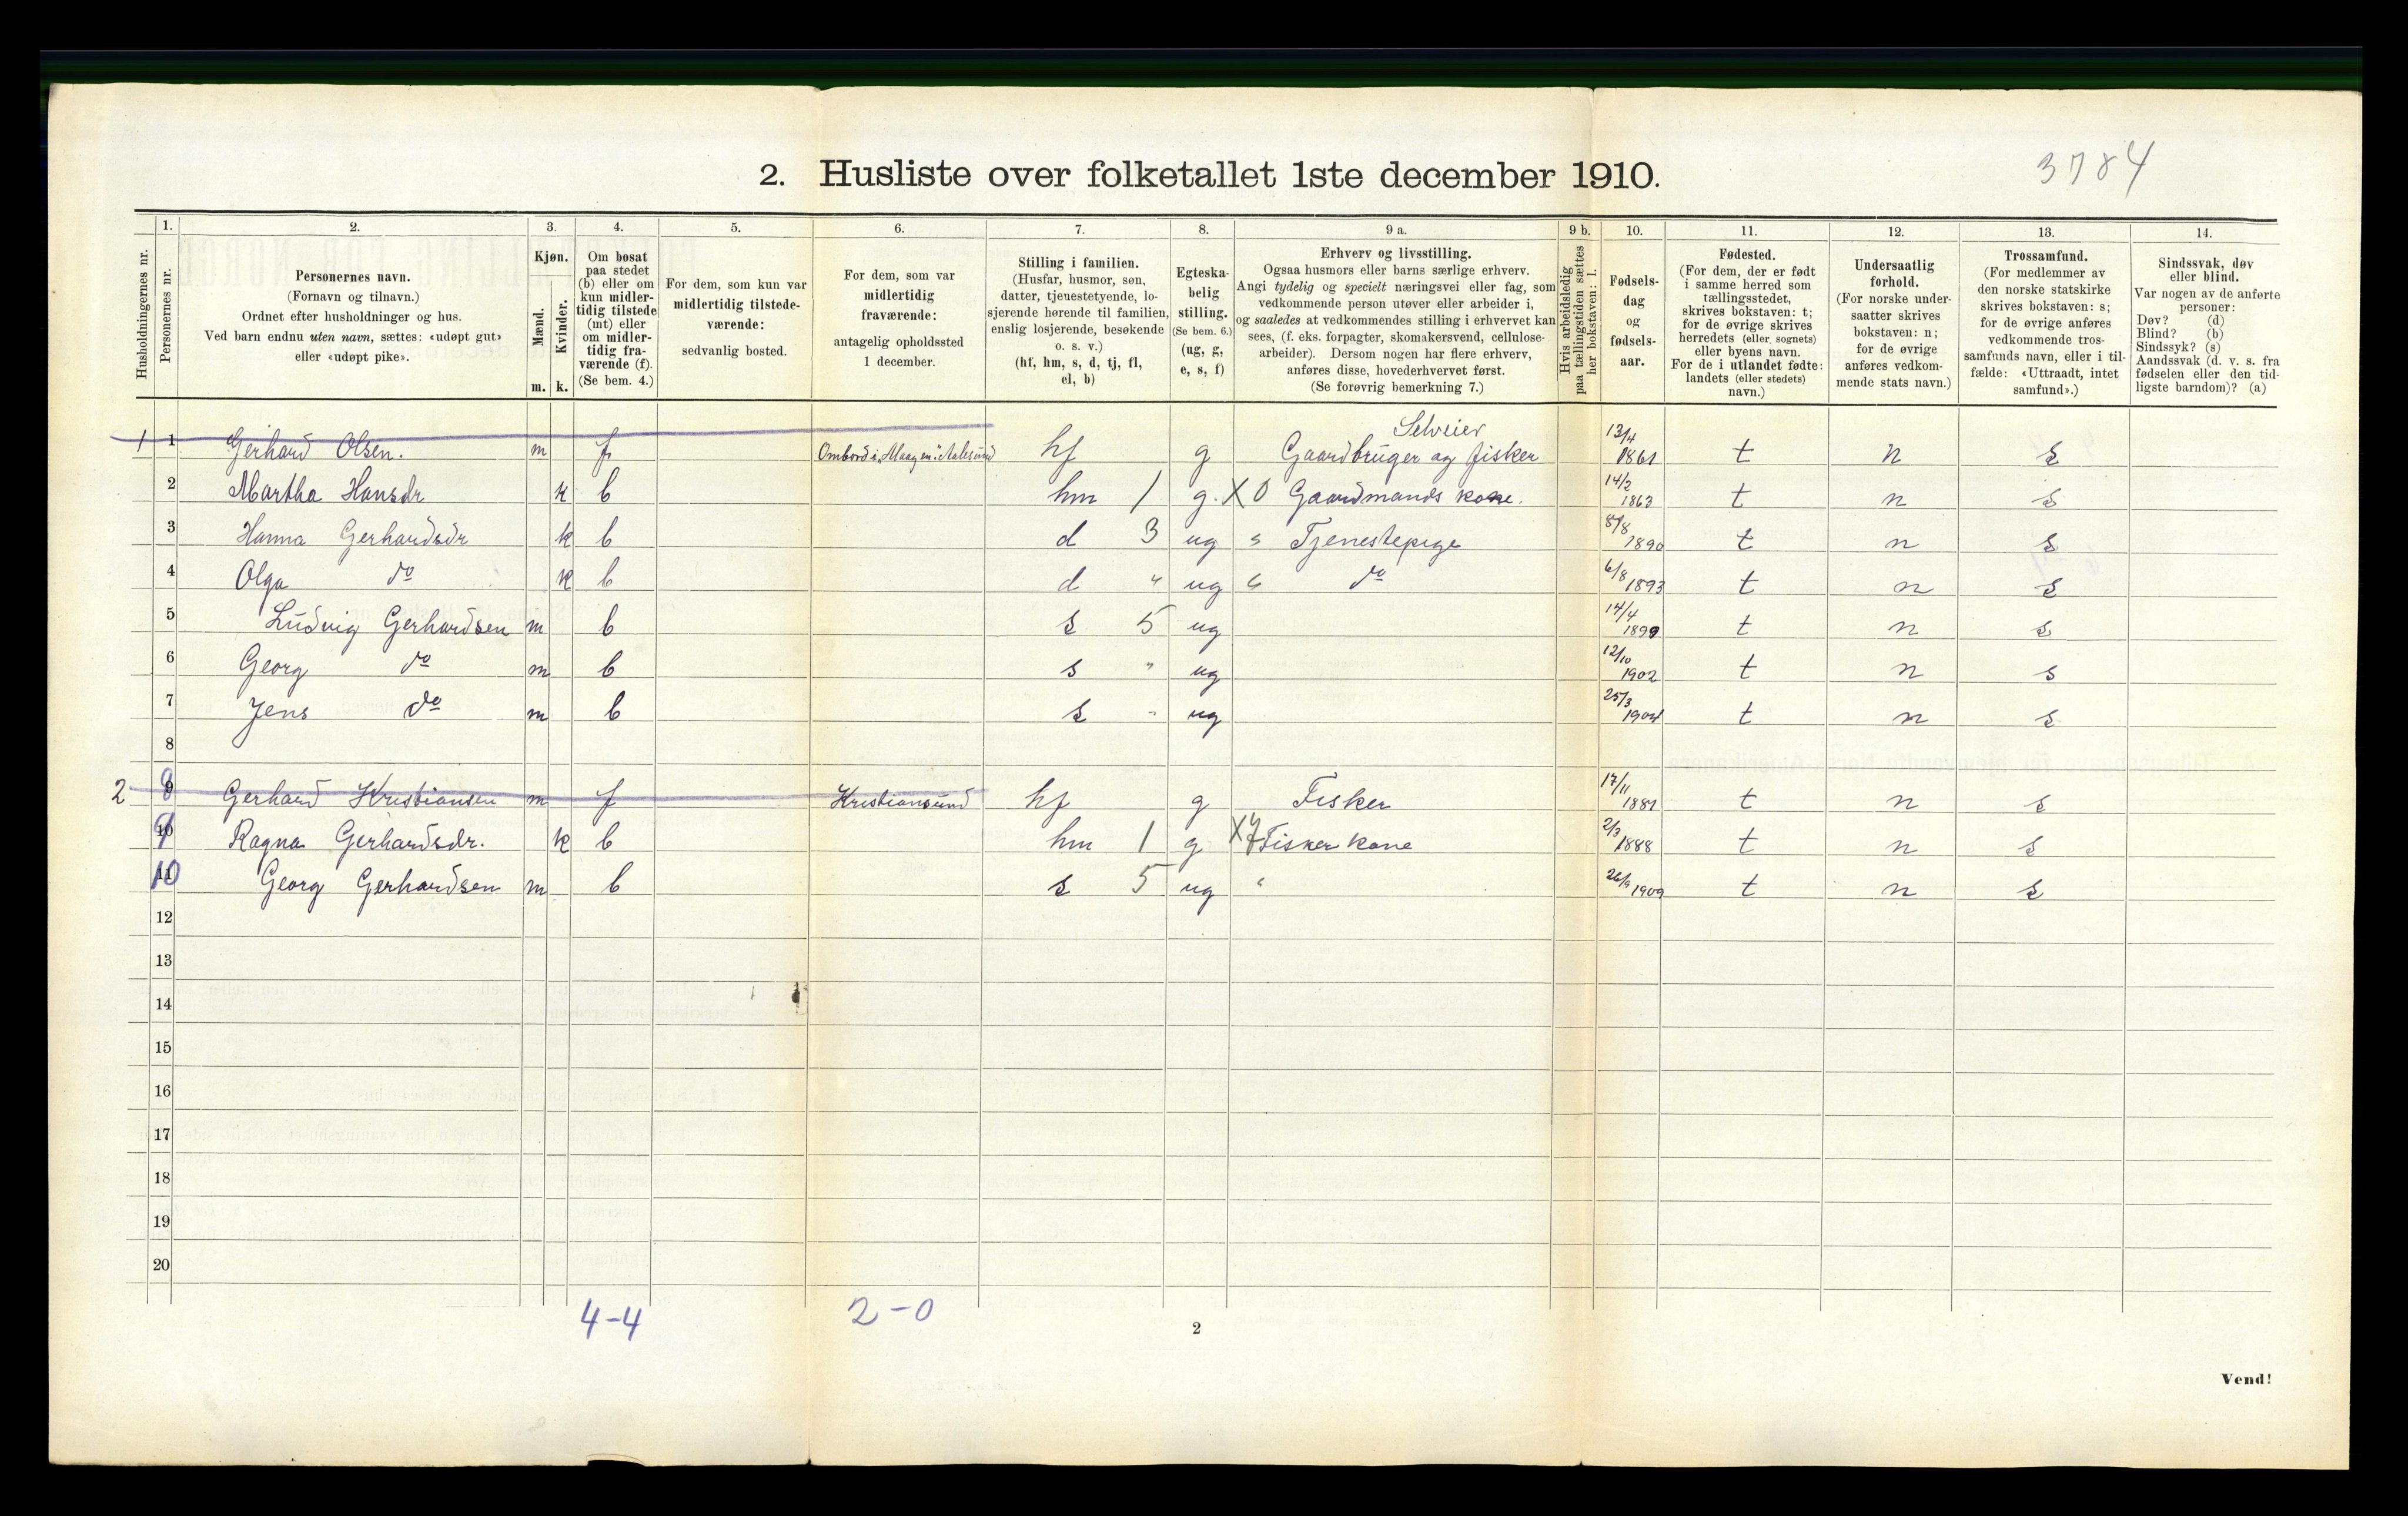 3784
2. Husliste over folketallet 1ste december 1910.
Husholdningernes nr.
1.
Personernes nr.
2.
Personernes navn.
(Fornavn og tilnavn.)
Ordnet efter husholdninger og hus.
Ved barn endnu uten navn, sættes: «udøpt gut»
eller «udøpt pike».
3.
Kjøn.
Mænd.
Kvinder.
m. k.
4.
Om bosat
paa stedet
(b) eller om
kun midler-
tidig tilstede
(mt) eller
om midler-
tidig fra-
værende (f).
(Se bem. 4.)
5.
For dem, som kun var
midlertidig tilstede-
værende:
sedvanlig bosted.
6.
For dem, som var
midlertidig
fraværende:
antagelig opholdssted
1 december.
7.
Stilling i familien.
(Husfar, husmor, søn,
datter, tjenestetyende, lo-
sjerende hørende til familien,
enslig losjerende, besøkende
o. s. v.)
(hf, hm, s, d, tj, fl,
el, b)
8.
Egteska-
belig
stilling.
(Se bem. 6.)
(ug, g,
e, s, f)
9 a.
Erhverv og livsstilling.
Ogsaa husmors eller barns særlige erhverv.
Angi tydelig og specielt næringsvei eller fag, som
vedkommende person utøver eller arbeider i,
og saaledes at vedkommendes stilling i erhvervet kan
sees, (f. eks. forpagter, skomakersvend, cellulose-
arbeider). Dersom nogen har flere erhverv,
anføres disse, hovederhvervet først.
(Se forøvrig bemerkning 7.)
9 b.
Hvis arbeidsledig
paa tællingstiden sættes
her bokstaven: l.
10.
Fødsels-
dag
og
fødsels-
aar.
11.
Fødested.
(For dem, der er født
i samme herred som
tællingsstedet,
skrives bokstaven: t;
for de øvrige skrives
herredets (eller sognets)
eller byens navn.
For de i utlandet fødte:
landets (eller stedets)
navn.)
12.
Undersaatlig
forhold.
(For norske under-
saatter skrives
bokstaven: n;
for de øvrige
anføres vedkom-
mende stats navn.)
13.
Trossamfund.
(For medlemmer av
den norske statskirke
skrives bokstaven: s;
for de øvrige anføres
vedkommende tros-
samfunds navn, eller i til-
fælde: «Uttraadt, intet
samfund».)
14.
Sindssvak, døv
eller blind.
Var nogen av de anførte
personer:
Døv? (d)
Blind? (b)
Sindssyk? (s)
Aandssvak (d. v. s. fra
fødselen eller den tid-
ligste barndom)? (a)
1 1 Gerhard Olsen. m f Ombord i "Maagen" Aalesund hf g Selveier Gaardbruger og fisker 13/4 1861 t n s
2 Martha Hansdr k b hm 1 g. X 0 Gaardmands kone. 14/2 1863 t n s
3 Hanna Gerhardsdr k b d 3 ug s Tjenestepige 1890 t n s
4 Olga do k b d " ug do 6/8 1893 t n s
5 Ludvig Gerhardsen m b s 5 ug 14/4 1899 t n s
6 Georg do m b s " ug 12/10 1902 t n s
7 Jens do m b s " ug 25/3 1904 t n s
8
2 9 8 Gerhard Kristiansen m f Kristiansund hf g Fisker 17/11 1881 t n s
10 9 Ragna Gerhardsdr. k b hm 1 g X Fisker kone 2/3 1888 t n s
11 10 Georg Gerhardsen m b s 5 ug " 26/9 1909 t n s
12
13
14
15
16
17
18
19
20
4-4 2-0
2
Vend!